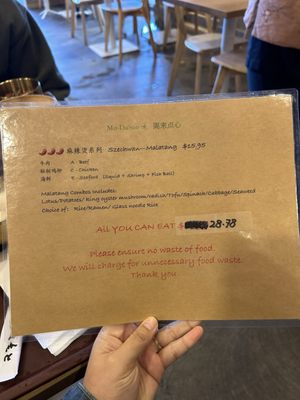 麻辣烫系列 Szechwan—Malatang $15.95
牛肉 A. Beef
C. Chicken
海鲜 E. Seafood (Squid + Shrimp + Fish Ball)
Malatang Combos Includes:
Lotus/Potatoes/ king oyster mushroom/radish/Tofu/Spinach/Cabbage/Seaweed
Choice of: Rice/Ramen/ Glass noodle Rice
All YOU CAN EAT $ 28.78
Please ensure no waste of food.
We will charge for unnecessary food waste.
Thank you